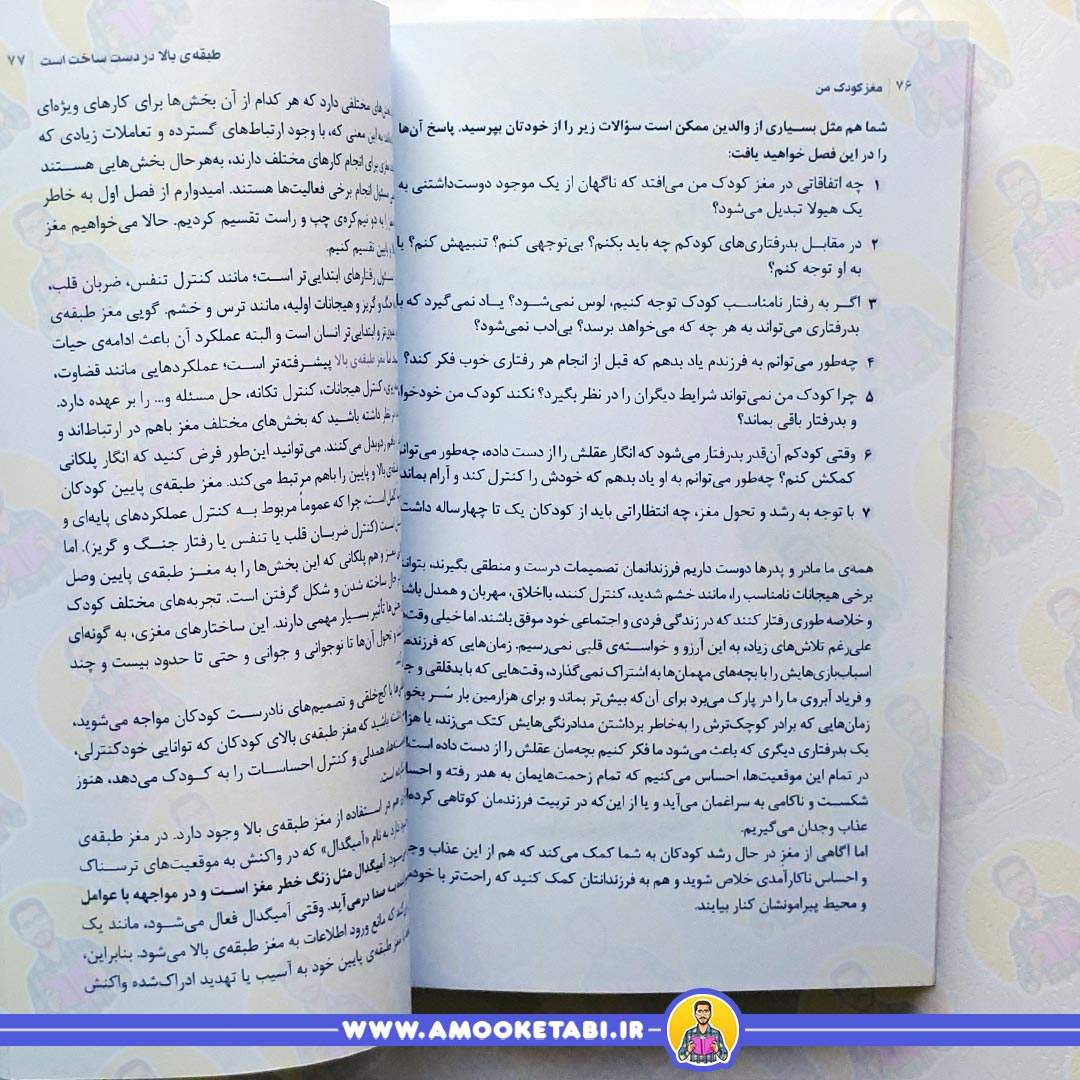 ۷۶ | مغز کودک من
شما هم مثل بسیاری از والدین ممکن است سؤالات زیر را از خودتان بپرسید. پاسخ آن‌ها
را در این فصل خواهید یافت:
۱ چه اتفاقاتی در مغز کودک من می‌افتد که ناگهان از یک موجود دوست‌داشتنی به
یک هیولا تبدیل می‌شود؟
۲ در مقابل بدرفتاری‌های کودکم چه باید بکنم؟ بی‌توجهی کنم؟ تنبیهش کنم؟ یا
به او توجه کنم؟
۳ اگر به رفتار نامناسب کودک توجه کنیم، لوس نمی‌شود؟ یاد نمی‌گیرد که با
بدرفتاری می‌تواند به هر چه که می‌خواهد برسد؟ بی‌ادب نمی‌شود؟
۴ چه‌طور می‌توانم به فرزندم یاد بدهم که قبل از انجام هر رفتاری خوب فکر کند؟
۵ چرا کودک من نمی‌تواند شرایط دیگران را در نظر بگیرد؟ نکند کودک من
و بدرفتار باقی بماند؟
۶ وقتی کودکم آن‌قدر بدرفتار می‌شود که انگار عقلش را از دست داده، چه‌طور
کمکش کنم؟ چه‌طور می‌توانم به او یاد بدهم که خودش را کنترل کند و آرام بماند
۷ با توجه به رشد و تحول مغز، چه انتظاراتی باید از کودکان یک تا چهارساله
همه‌ی ما مادر و پدرها دوست داریم فرزندانمان تصمیمات درست و منطقی بگیرند،
برخی هیجانات نامناسب را، مانند خشم شدید، کنترل کنند، بااخلاق، مهربان و همدل
و خلاصه طوری رفتار کنند که در زندگی فردی و اجتماعی خود موفق باشند. اما خیلی
علی‌رغم تلاش‌های زیاد، به این آرزو و خواسته‌ی قلبی نمی‌رسیم. زمان‌هایی که
اسباب‌بازی‌هایش را با بچه‌های مهمان‌ها به اشتراک نمی‌گذارد، وقت‌هایی که با بدقلقی و
و فریاد آبروی ما را در پارک می‌برد برای آن‌که بیش‌تر بماند و برای هزارمین بار سُر
زمان‌هایی که برادر کوچک‌ترش را به‌خاطر برداشتن مدادرنگی‌هایش کتک می‌زند، یا
یک بدرفتاری دیگری که باعث می‌شود ما فکر کنیم بچه‌مان عقلش را از دست داده است
در تمام این موقعیت‌ها، احساس می‌کنیم که تمام زحمت‌هایمان به هدر رفته و
شکست و ناکامی به سراغمان می‌آید و یا از این‌که در تربیت فرزندمان کوتاهی
عذاب وجدان می‌گیریم.
اما آگاهی از مغز در حال رشد کودکان به شما کمک می‌کند که هم از این عذاب
و احساس ناکارآمدی خلاص شوید و هم به فرزندانتان کمک کنید که راحت‌تر با
و محیط پیرامونشان کنار بیایند.
طبقه‌ی بالا در دست ساخت است | ۷۷
مختلفی دارد که هر کدام از آن بخش‌ها برای کارهای ویژه‌ای
این معنی که، با وجود ارتباط‌های گسترده و تعاملات زیادی که
برای انجام کارهای مختلف دارند، به‌هرحال بخش‌هایی هستند
مسئول انجام برخی فعالیت‌ها هستند. امیدوارم از فصل اول به خاطر
به دو نیم‌کره‌ی چپ و راست تقسیم کردیم. حالا می‌خواهیم مغز
و پایین تقسیم کنیم.
مسئول رفتارهای ابتدایی‌تر است؛ مانند کنترل تنفس، ضربان قلب،
و گریز و هیجانات اولیه، مانند ترس و خشم. گویی مغز طبقه‌ی
و ابتدایی‌تر انسان است و البته عملکرد آن باعث ادامه‌ی حیات
مغز طبقه‌ی بالا پیشرفته‌تر است؛ عملکردهایی مانند قضاوت،
کنترل هیجانات، کنترل تکانه، حل مسئله و... را بر عهده دارد.
نظر داشته باشید که بخش‌های مختلف مغز باهم در ارتباط‌اند و
ردوبدل می‌کنند. می‌توانید این‌طور فرض کنید که انگار پلکانی
بالا و پایین را باهم مرتبط می‌کند. مغز طبقه‌ی پایین کودکان
است، چرا که عموماً مربوط به کنترل عملکردهای پایه‌ای و
است (کنترل ضربان قلب یا تنفس یا رفتار جنگ و گریز). اما
و هم پلکانی که این بخش‌ها را به مغز طبقه‌ی پایین وصل
حال ساخته شدن و شکل گرفتن است. تجربه‌های مختلف کودک
تأثیر بسیار مهمی دارند. این ساختارهای مغزی، به گونه‌ای
و تحول آن‌ها تا نوجوانی و جوانی و حتی تا حدود بیست و چند
با کج‌خلقی و تصمیم‌های نادرست کودکان مواجه می‌شوید،
باشید که مغز طبقه‌ی بالای کودکان که توانایی خودکنترلی،
همدلی و کنترل احساسات را به کودک می‌دهد، هنوز
است.
در استفاده از مغز طبقه‌ی بالا وجود دارد. در مغز طبقه‌ی
به نام «آمیگدال» که در واکنش به موقعیت‌های ترسناک
آمیگدال مثل زنگ خطر مغز است و در مواجهه با عوامل
به صدا درمی‌آید. وقتی آمیگدال فعال می‌شود، مانند یک
که مانع ورود اطلاعات به مغز طبقه‌ی بالا می‌شود. بنابراین،
مغز طبقه‌ی پایین خود به آسیب یا تهدید ادراک‌شده واکنش
WWW.AMOOKETABI.IR